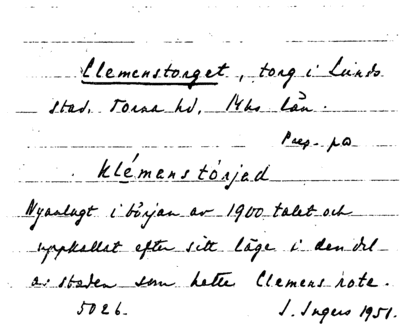 Clemenstorget, torg i Lunds
stad. Torna hd, Mhs län.
Prep. på
klémenstórjed
Nyanlagt i början av 1900 talet och
uppkallat efter sitt läge i den del
av staden som hette Clemens rote.
5026. I. Ingers 1951.